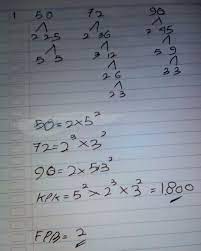 1 50 72 90
2 25 2 36 2 45
5 5 3 12 5 9
2 6 3 3
2 3
50 = 2 x 5²
72 = 2³ x 3²
90 = 2 x 53²
KPK = 5² x 2³ x 3² = 1.800
FPB = 2